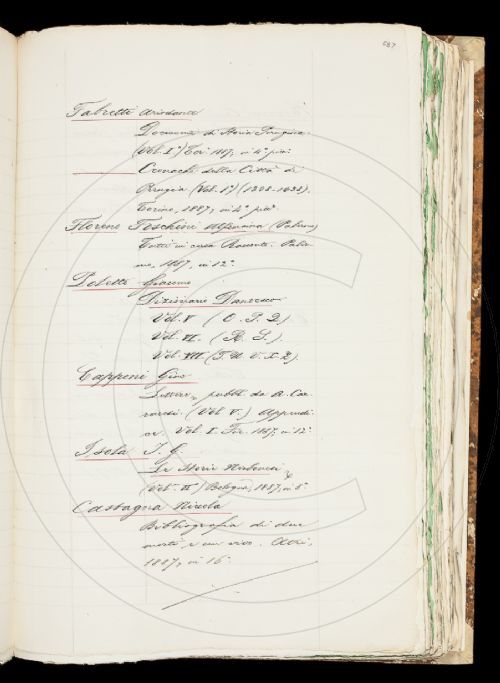 687
Fabretti Ariodante
Documenti di Storia Perugina
(Vol. I°) Tor. 1887, in 4° picc.
Cronache della Città di
Perugia (Vol. I°) (1308-1438).
Torino, 1887, in 4° picc.
Floreno Foschini (Palermo)
Tutti in casa Racconto. Paler-
mo, 1887, in 12°
Poletto Giacomo
Dizionario Dantesco
Vol. V (O. P. Q.)
Vol. VI. (R. S.).
Vol. VII (T. U. V. Z.).
Capponi Gino
Lettere, pubbl. da A. Car-
raresi. (Vol. V.) Appendi-
ce. Vol. I. Fir. 1887, in 12°
Isola I. G.
Le Storie Nerbonesi
(Vol. II°) Bologna, 1887, in 8°
Castagna Nicola
Bibliografia di due
morti e un vivo. Atri,
1887, in 16°